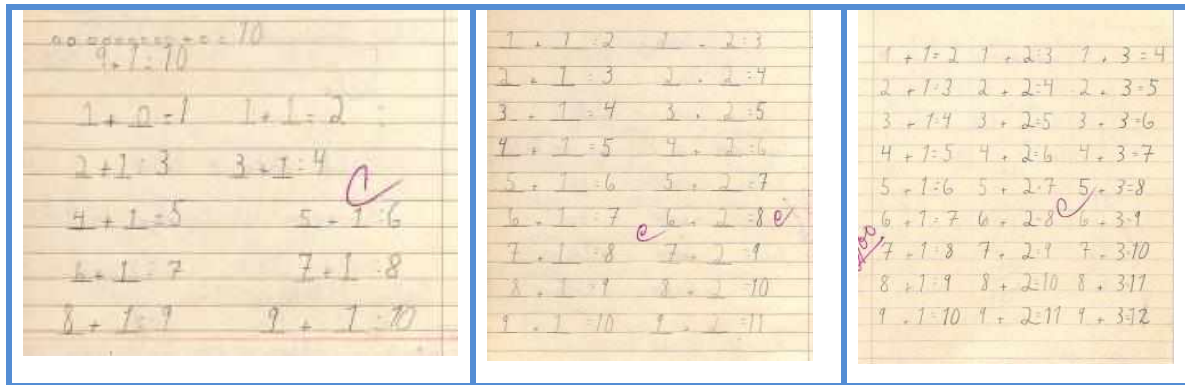 9+1=10
1+0=1 1+1=2
2+1=3 3+1=4
4+1=5 5+1=6
6+1=7 7+1=8
8+1=9 9+1=10
1+1=2 1+2=3
2+1=3 2+2=4
3+1=4 3+2=5
4+1=5 4+2=6
5+1=6 5+2=7
6+1=7 6+2=8
7+1=8 7+2=9
8+1=9 8+2=10
9+1=10 9+2=11
1+1=2 1+2=3 1+3=4
2+1=3 2+2=4 2+3=5
3+1=4 3+2=5 3+3=6
4+1=5 4+2=6 4+3=7
5+1=6 5+2=7 5+3=8
6+1=7 6+2=8 6+3=9
7+1=8 7+2=9 7+3=10
8+1=9 8+2=10 8+3=11
9+1=10 9+2=11 9+3=12